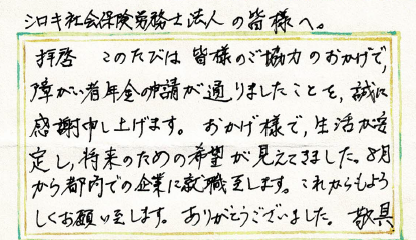 シロキ社会保険労務士法人の皆様へ。
拝啓 このたびは皆様のご協力のおかげで、
障がい者年金の申請が通りましたことを、誠に
感謝申し上げます。おかげ様で、生活が安
定し、将来のための希望が見えてきました。8月
から都内での企業に就職致します。これからもよろ
しくお願い致します。ありがとうございました。敬具